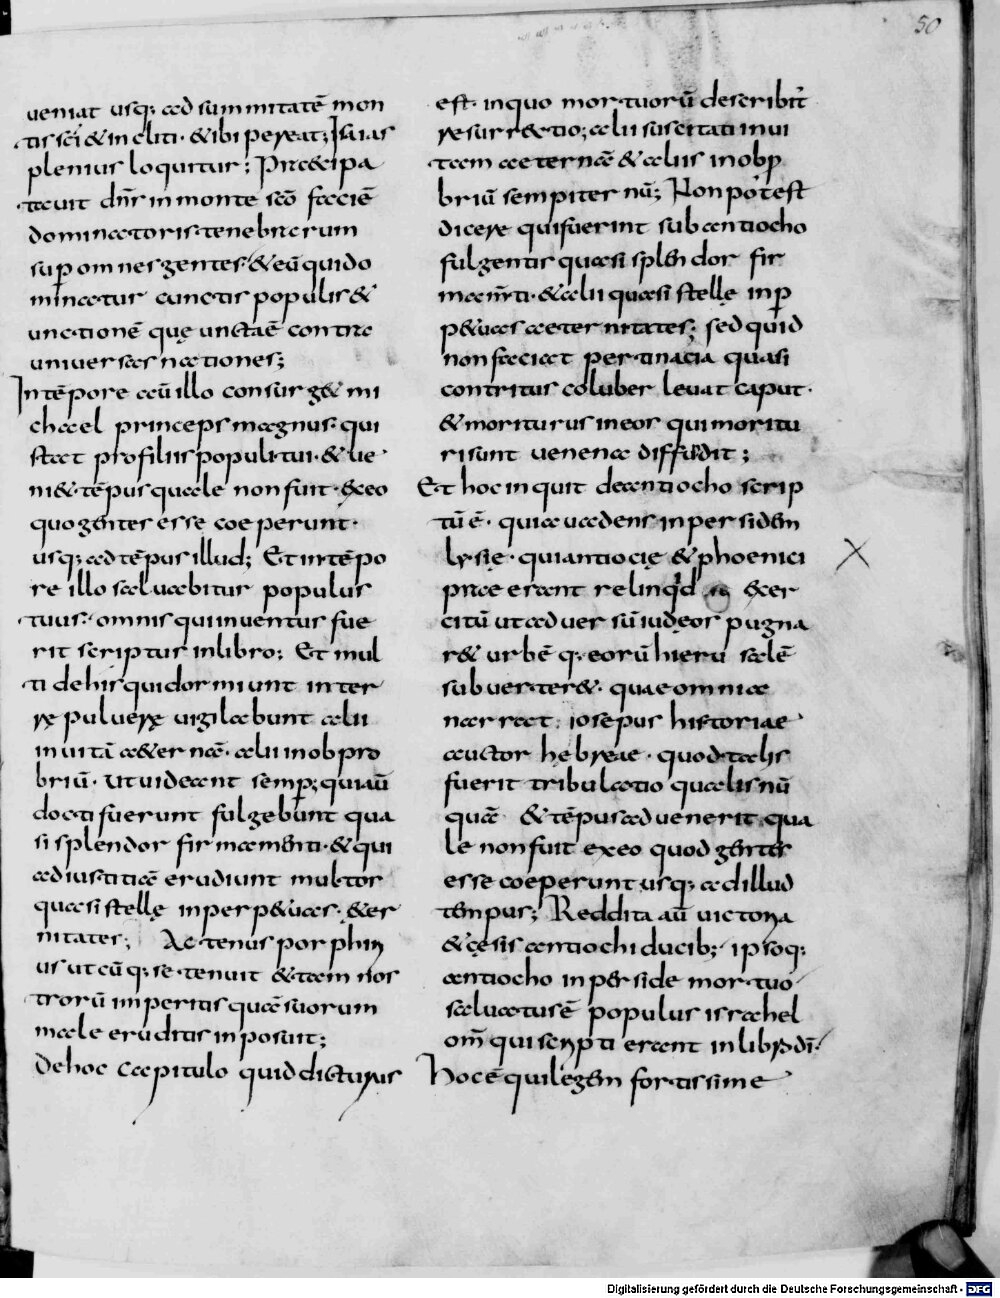 50
ueniat usq; ad summitatē mon
tis sc̄i & incliti · & ibi pereat; Isaias
plenius loquitur; Praecipa
tauit dn̄s in monte sc̄o faciē
dominatoris tenebrarum
sup omnes gentes & eū qui do
minatur cunctis populis &
unctionē quę uncta ē contra
uniuersas nationes;
In tēpore aū illo consurg& mi
chael princeps magnus · qui
stat pro filiis populi tui · & ue
ni& tēpus quale non fuit · ex eo
quo gentes esse coeperunt ·
usq; ad tēpus illud; Et in tēpo
re illo saluabitur populus
tuus · omnis qui inuentus fue
rit scriptus in libro; Et mul
ti de his qui dormiunt in ter
re puluere uigilabunt alii
in uitā aeternā · alii in obpro
briū · ut uideant semp; qui aū
docti fuerunt fulgebunt qua
si splendor firmamenti · & qui
ad iustitiā erudiunt multos
quasi stellę in perpetuas &er
nitates; Actenus porphiri
us utcūq; se tenuit & tam nos
trorū imperitis quā suorum
male eruditis inposuit;
De hoc capitulo quid dicturus
est · in quo mortuorū describit̄
resurrectio; alii suscitati in ui
tam aeternā & aliis in obp
briū sempiternū; Non potest
dicere qui fuerint sub antiocho
fulgentis quasi splendor fir
mam̄ti · & alii quasi stellę in p
p&uas aeternitates; sed quid
non faciat pertinacia quasi
contritus coluber leuat caput ·
& moriturus in eos qui moritu
ri sunt uenena diffūdit;
Et hoc inquit de antiocho scrip
tū ē · quia uadens in persidem
lysię · qui antiocię & phoenici
prae erant reliquid exer
citū ut aduersū iudęos pugna
r& urbē q; eorū hierusalē
subuerter& · quae omnia
narrat iosepus historiae
auctor hebreae · quod talis
fuerit tribulatio qualis nū
quā & tēpus aduenerit qua
le non fuit ex eo quod gentes
esse coeperunt usq; ad illud
tempus; Reddita aū uictoria
& cęsis antiochi ducib; ipsoq;
antiocho in perside mortuo
saluatus ē populus israhel
om̄ qui scripti erant in libro dī ·
Hoc ē qui legem fortissime
Digitalisierung gefördert durch die Deutsche Forschungsgemeinschaft · DFG